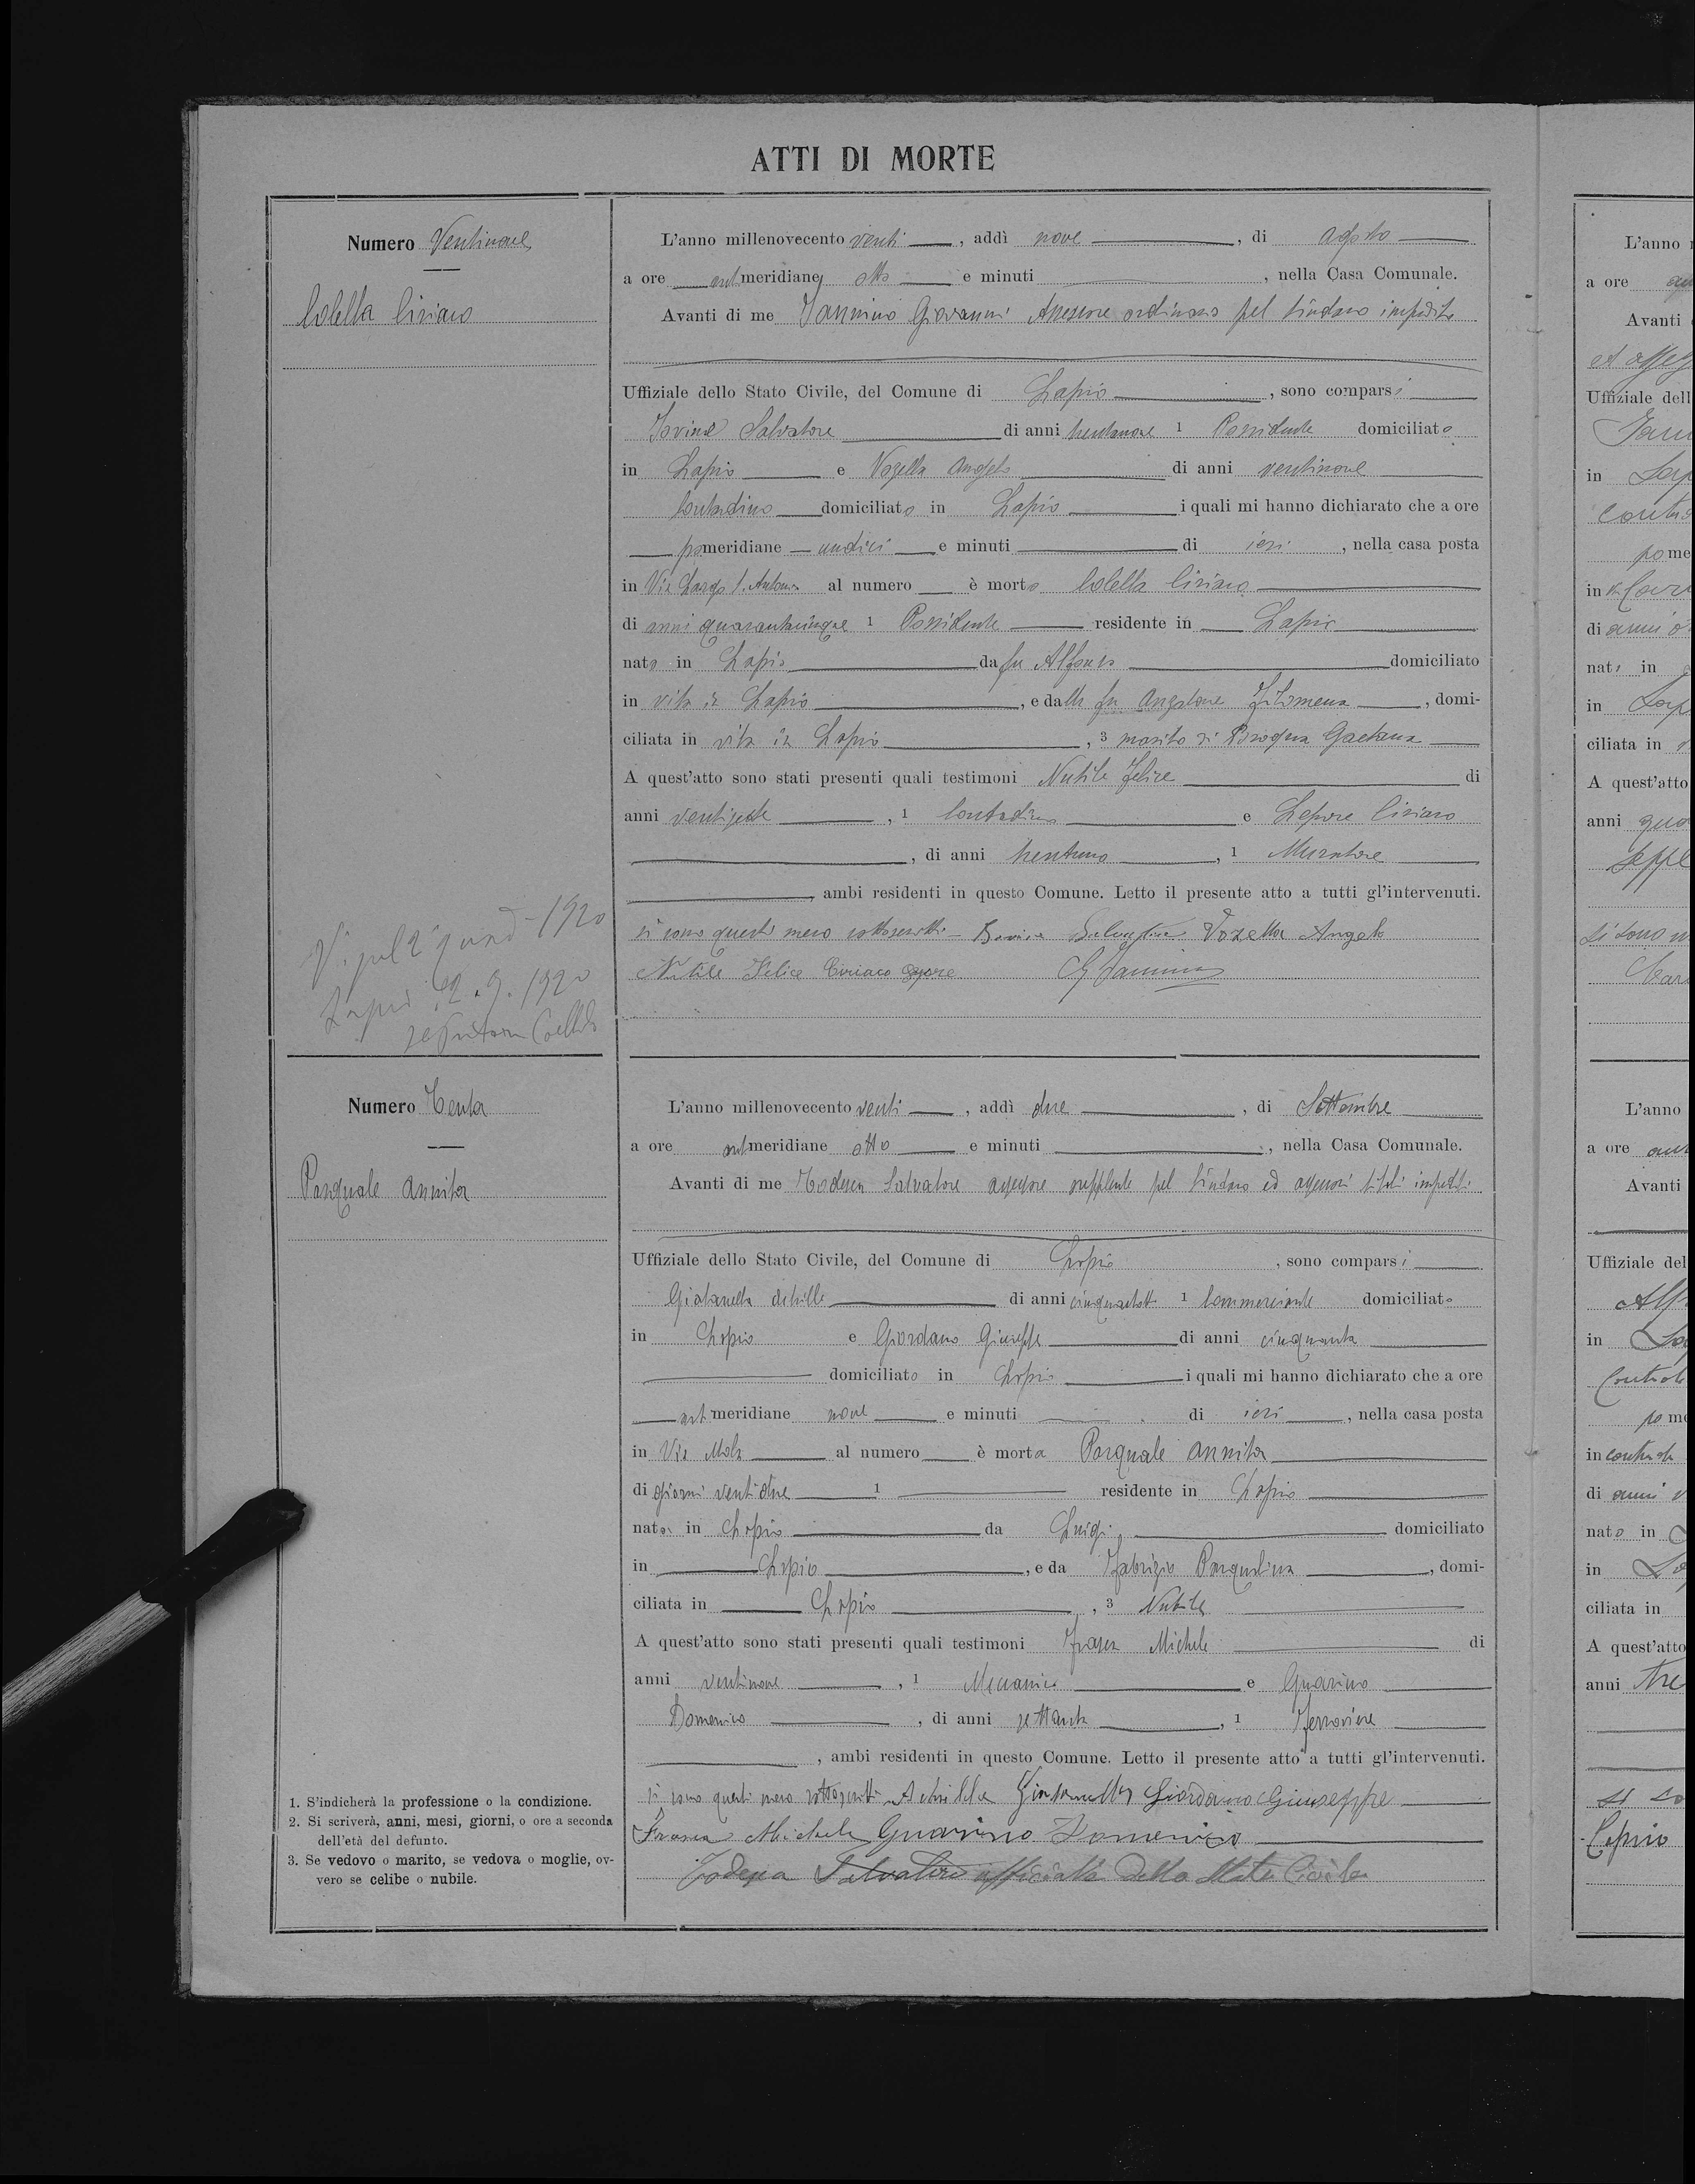 ATTI DI MORTE
Numero Ventinove
Colella Ciriaco
L'anno millenovecento venti, addì nove, di Agosto
a ore antmeridiane otto e minuti, nella Casa Comunale.
Avanti di me Iannino Giovanni Assessore ordinario pel Sindaco impedito
Uffiziale dello Stato Civile, del Comune di Lapio, sono comparsi
Iovine Salvatore di anni trentanove 1 Possidente domiciliato
in Lapio e Vozella Angelo di anni ventinove
Contadino domiciliato in Lapio i quali mi hanno dichiarato che a ore
pomeridiane undici e minuti di ieri, nella casa posta
in Via Largo S. Antonio al numero è morto Colella Ciriaco
di anni quarantacinque 1 Possidente residente in Lapio
nato in Lapio da fu Alfonso domiciliato
in vita in Lapio, e dalla fu Angelone Filomena, domi-
ciliata in vita in Lapio, 3 marito di Gaetana
A quest'atto sono stati presenti quali testimoni Nutile Felice di
anni ventisette, 1 Contadino e Lepore Ciriaco
di anni trentuno, 1 Muratore
ambi residenti in questo Comune. Letto il presente atto a tutti gl'intervenuti.
si sono questi meco sottoscritti - Iovine Salvatore Vozella Angelo
Nutile Felice Ciriaco Lepore G. Iannino
1920
Lapio 2.9.1920
Numero Trenta
Pasquale Annita
L'anno millenovecento venti, addì due, di Settembre
a ore antmeridiane otto e minuti, nella Casa Comunale.
Avanti di me Todesca Salvatore assessore supplente pel Sindaco ed assessori titolari impediti
Uffiziale dello Stato Civile, del Comune di Lapio, sono comparsi
Achille di anni cinquantotto 1 Commerciante domiciliato
in Lapio e Giordano Giuseppe di anni cinquanta
domiciliato in Lapio i quali mi hanno dichiarato che a ore
antmeridiane nove e minuti di ieri, nella casa posta
in Via al numero è morta Pasquale Annita
di giorni ventidue 1 residente in Lapio
nata in Lapio da Luigi domiciliato
in Lapio, e da Fabrizio Pasqualina, domi-
ciliata in Lapio, 3 Nubile
A quest'atto sono stati presenti quali testimoni Michele di
anni ventinove, 1 Meccanico e Guarino
Domenico, di anni settanta, 1 Ferroviere
, ambi residenti in questo Comune. Letto il presente atto a tutti gl'intervenuti.
si sono questi meco sottoscritti - Achille Giordano Giuseppe
Michele Guarino Domenico
Todesca Salvatore ufficiale dello Stato Civile
1. S'indicherà la professione o la condizione.
2. Si scriverà, anni, mesi, giorni, o ore a seconda
dell'età del defunto.
3. Se vedovo o marito, se vedova o moglie, ov-
vero se celibe o nubile.
L'anno
a ore
Avanti
Uffiziale dell
in
pome
in
di anni
nato in
in
ciliata in
A quest'atto
anni
L'anno
a ore
Avanti
Uffiziale del
in
pome
in contrada
di anni
nato in
in
ciliata in
A quest'atto
anni tre